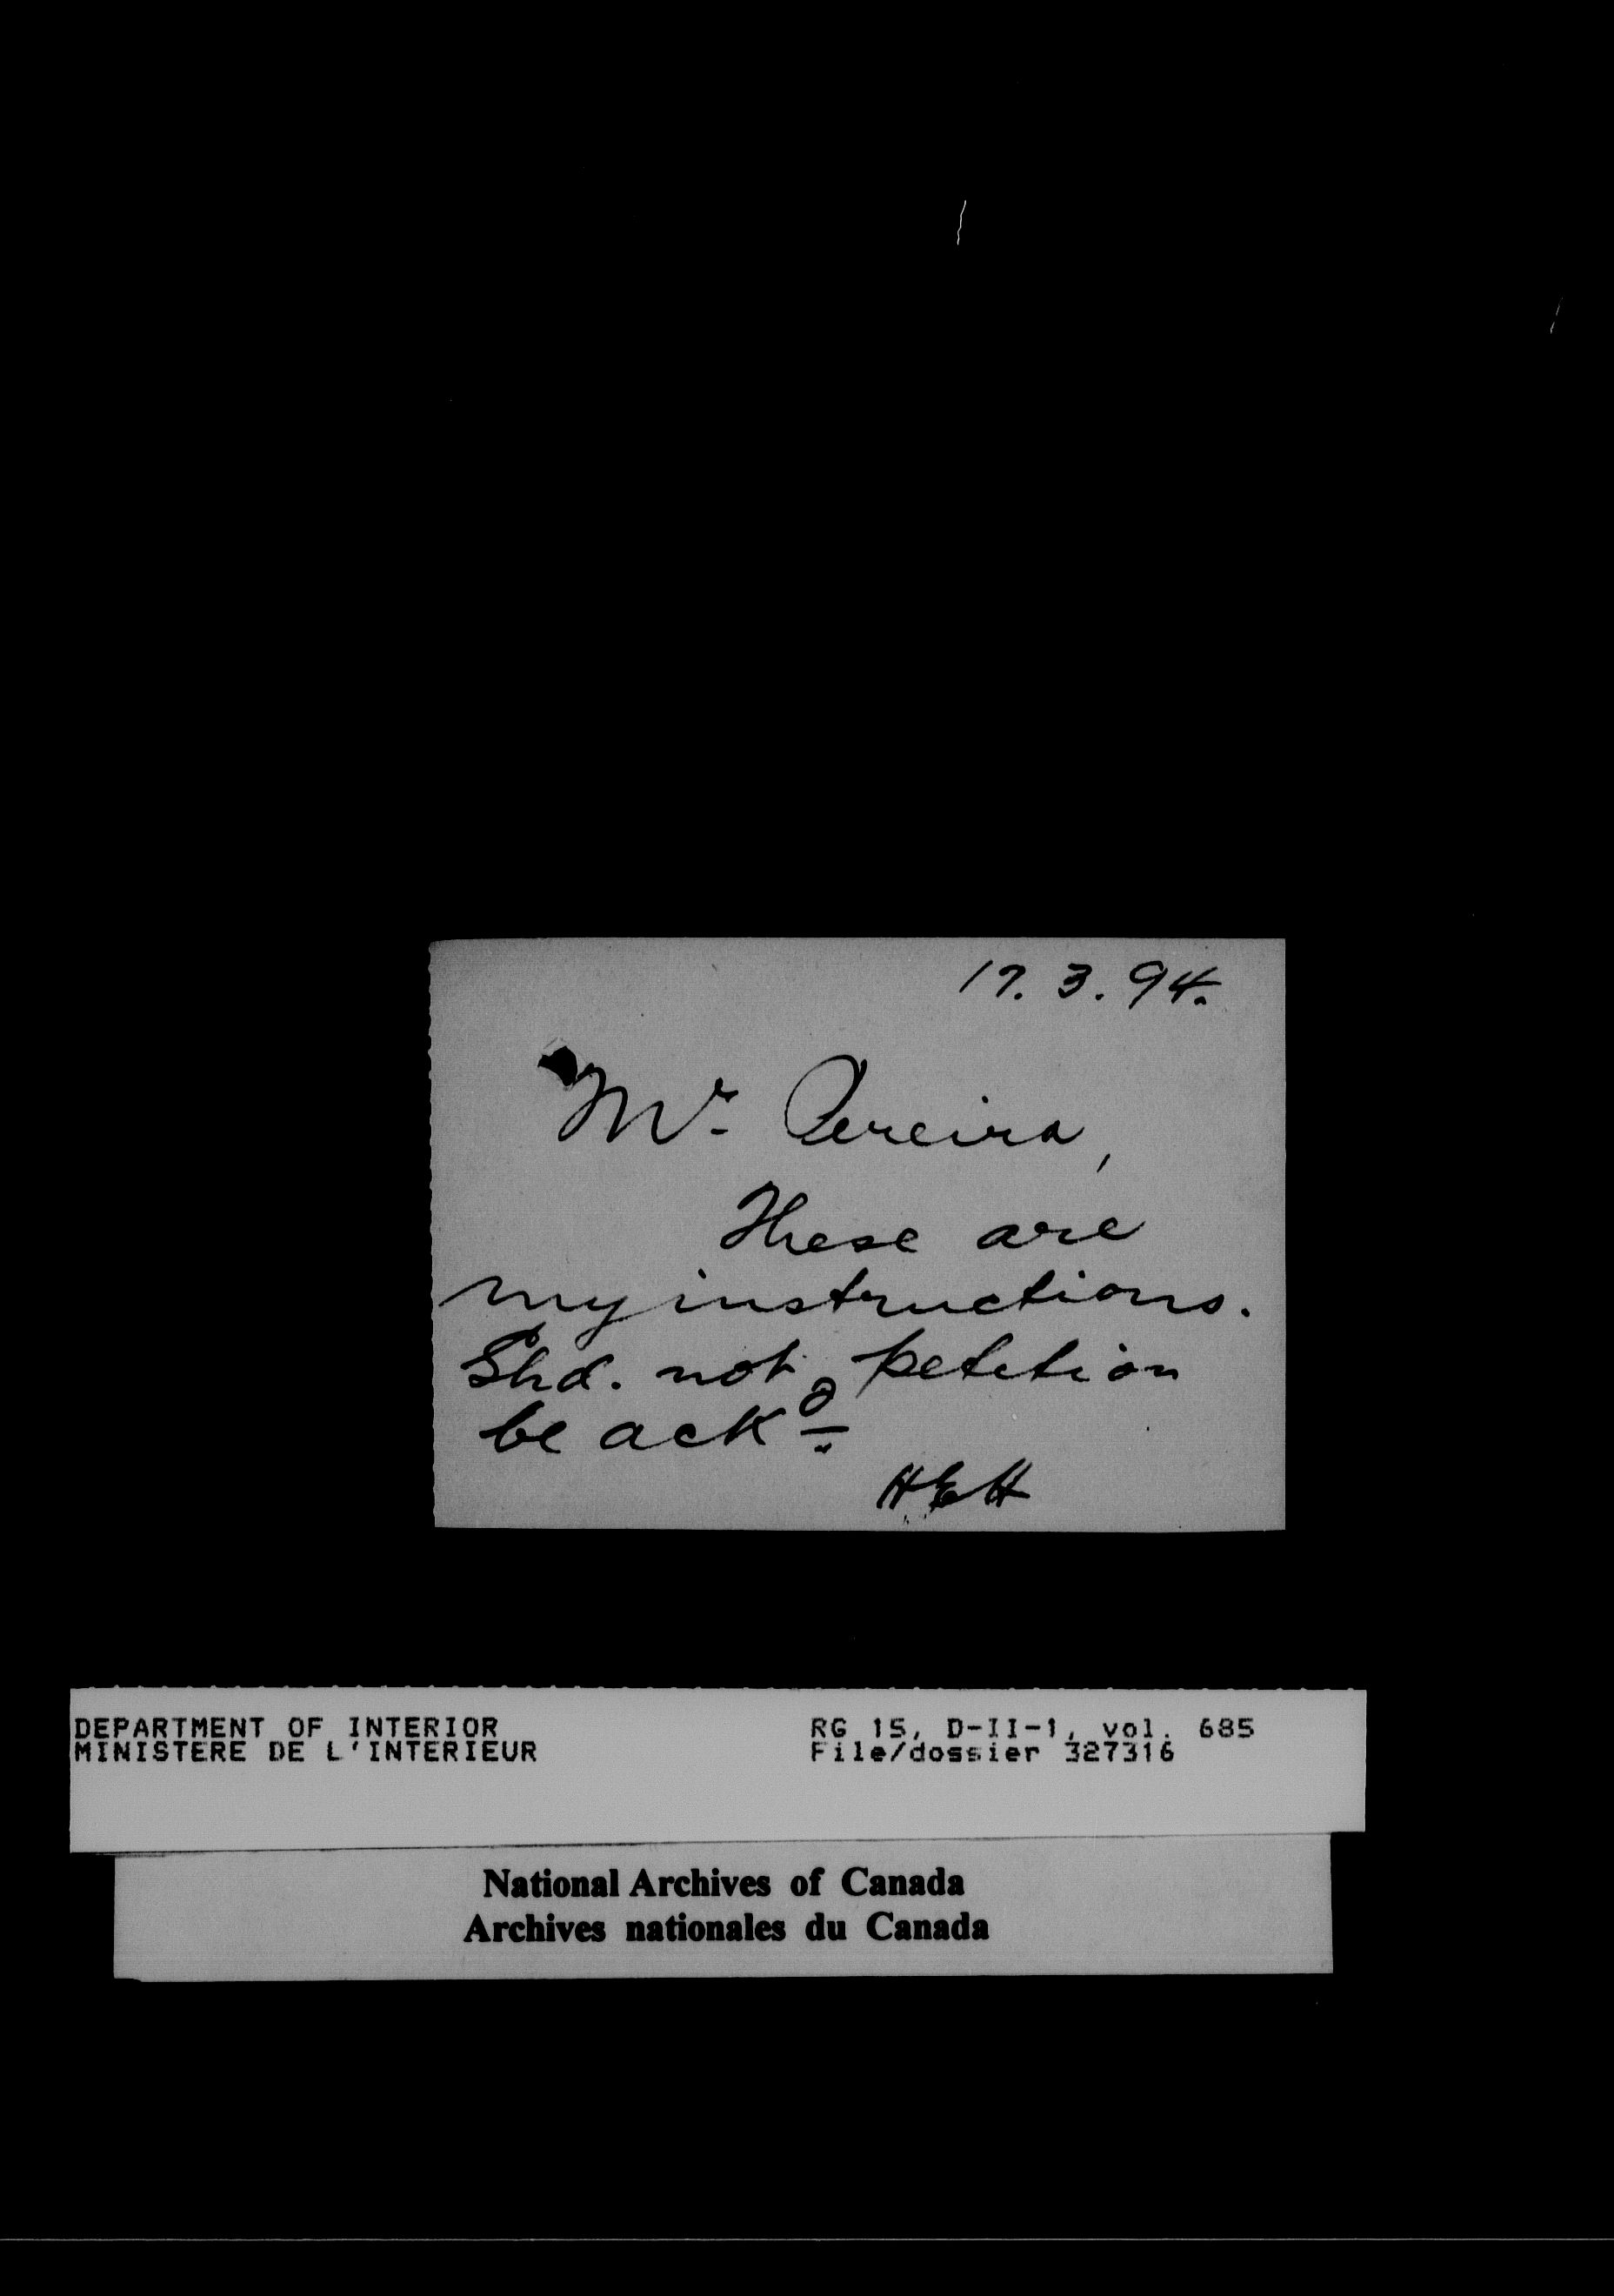 17. 3. 94.
Mr. Pereira,
These are
my instructions.
Shd. not petition
be ackd.
HEH
DEPARTMENT OF INTERIOR RG 15, D-II-1, vol. 685
MINISTERE DE L'INTERIEUR File/dossier 327316
National Archives of Canada
Archives nationales du Canada